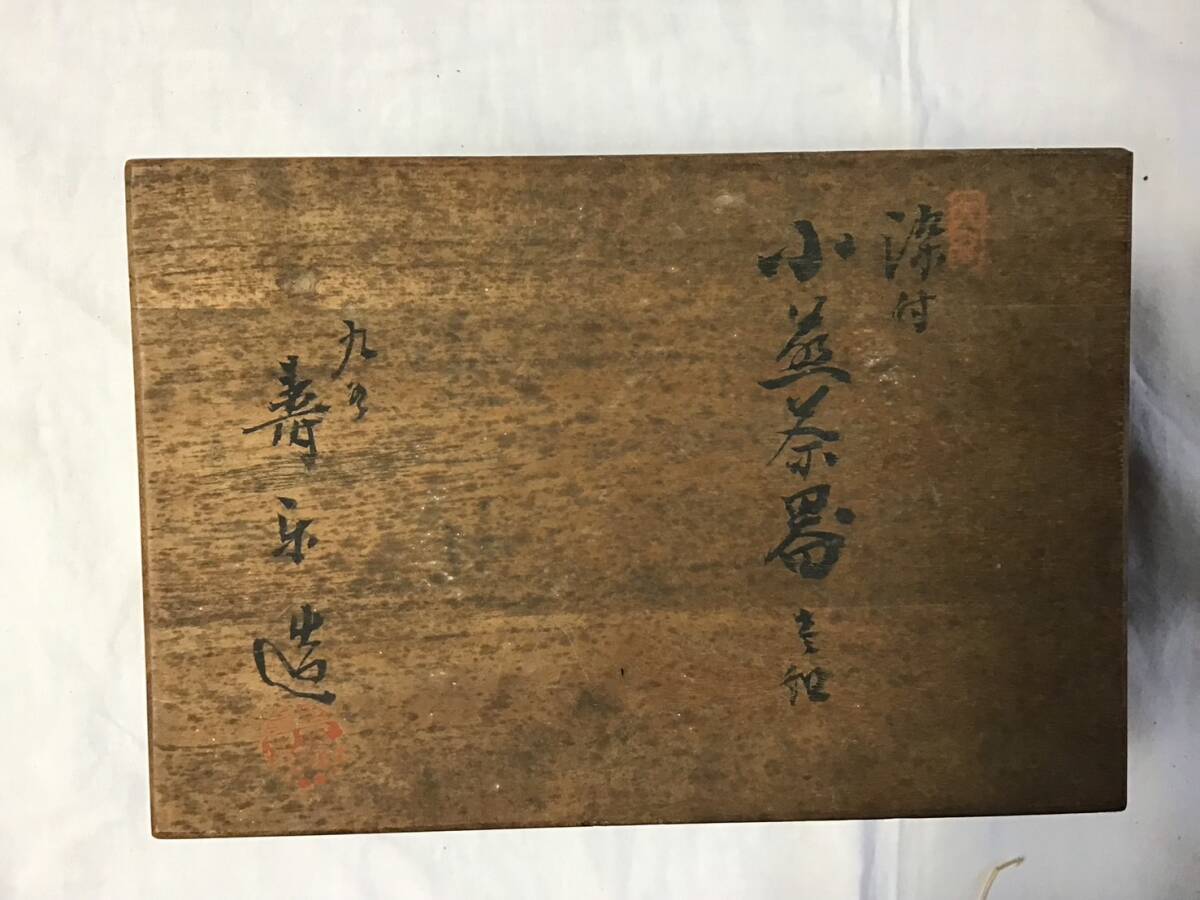 染付
小煎茶器 壱組
九谷
寿楽造